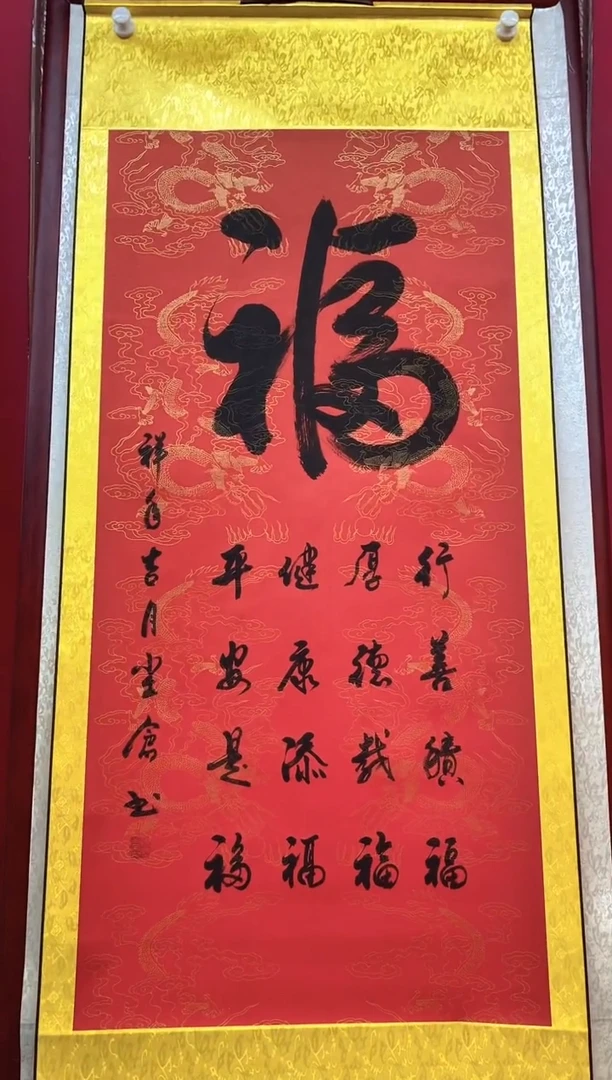 福
行善積福
厚德载福
健康添福
平安是福
祥年吉月倉书